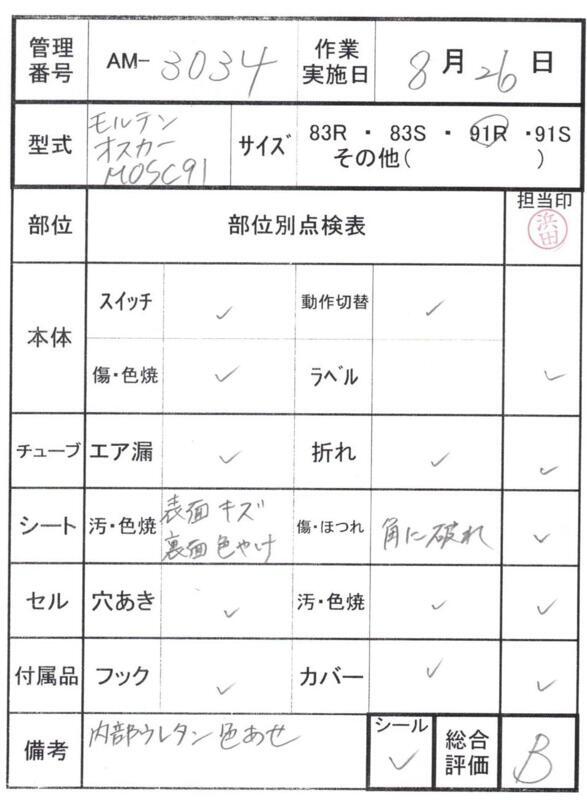 管理番号 AM-3034 作業実施日 8月26日
型式 モルテン オスカー MOSC91 サイズ 83R ・ 83S ・ 91R ・91S
その他( )
部位 部位別点検表 担当印 浜田
本体 スイッチ ✓ 動作切替 ✓
傷・色焼 ✓ ラベル ✓
チューブ エア漏 ✓ 折れ ✓ ✓
シート 汚・色焼 表面キズ 裏面色やけ 傷・ほつれ 角に破れ ✓
セル 穴あき ✓ 汚・色焼 ✓ ✓
付属品 フック ✓ カバー ✓ ✓
備考 内部ウレタン色あせ シール ✓ 総合評価 B